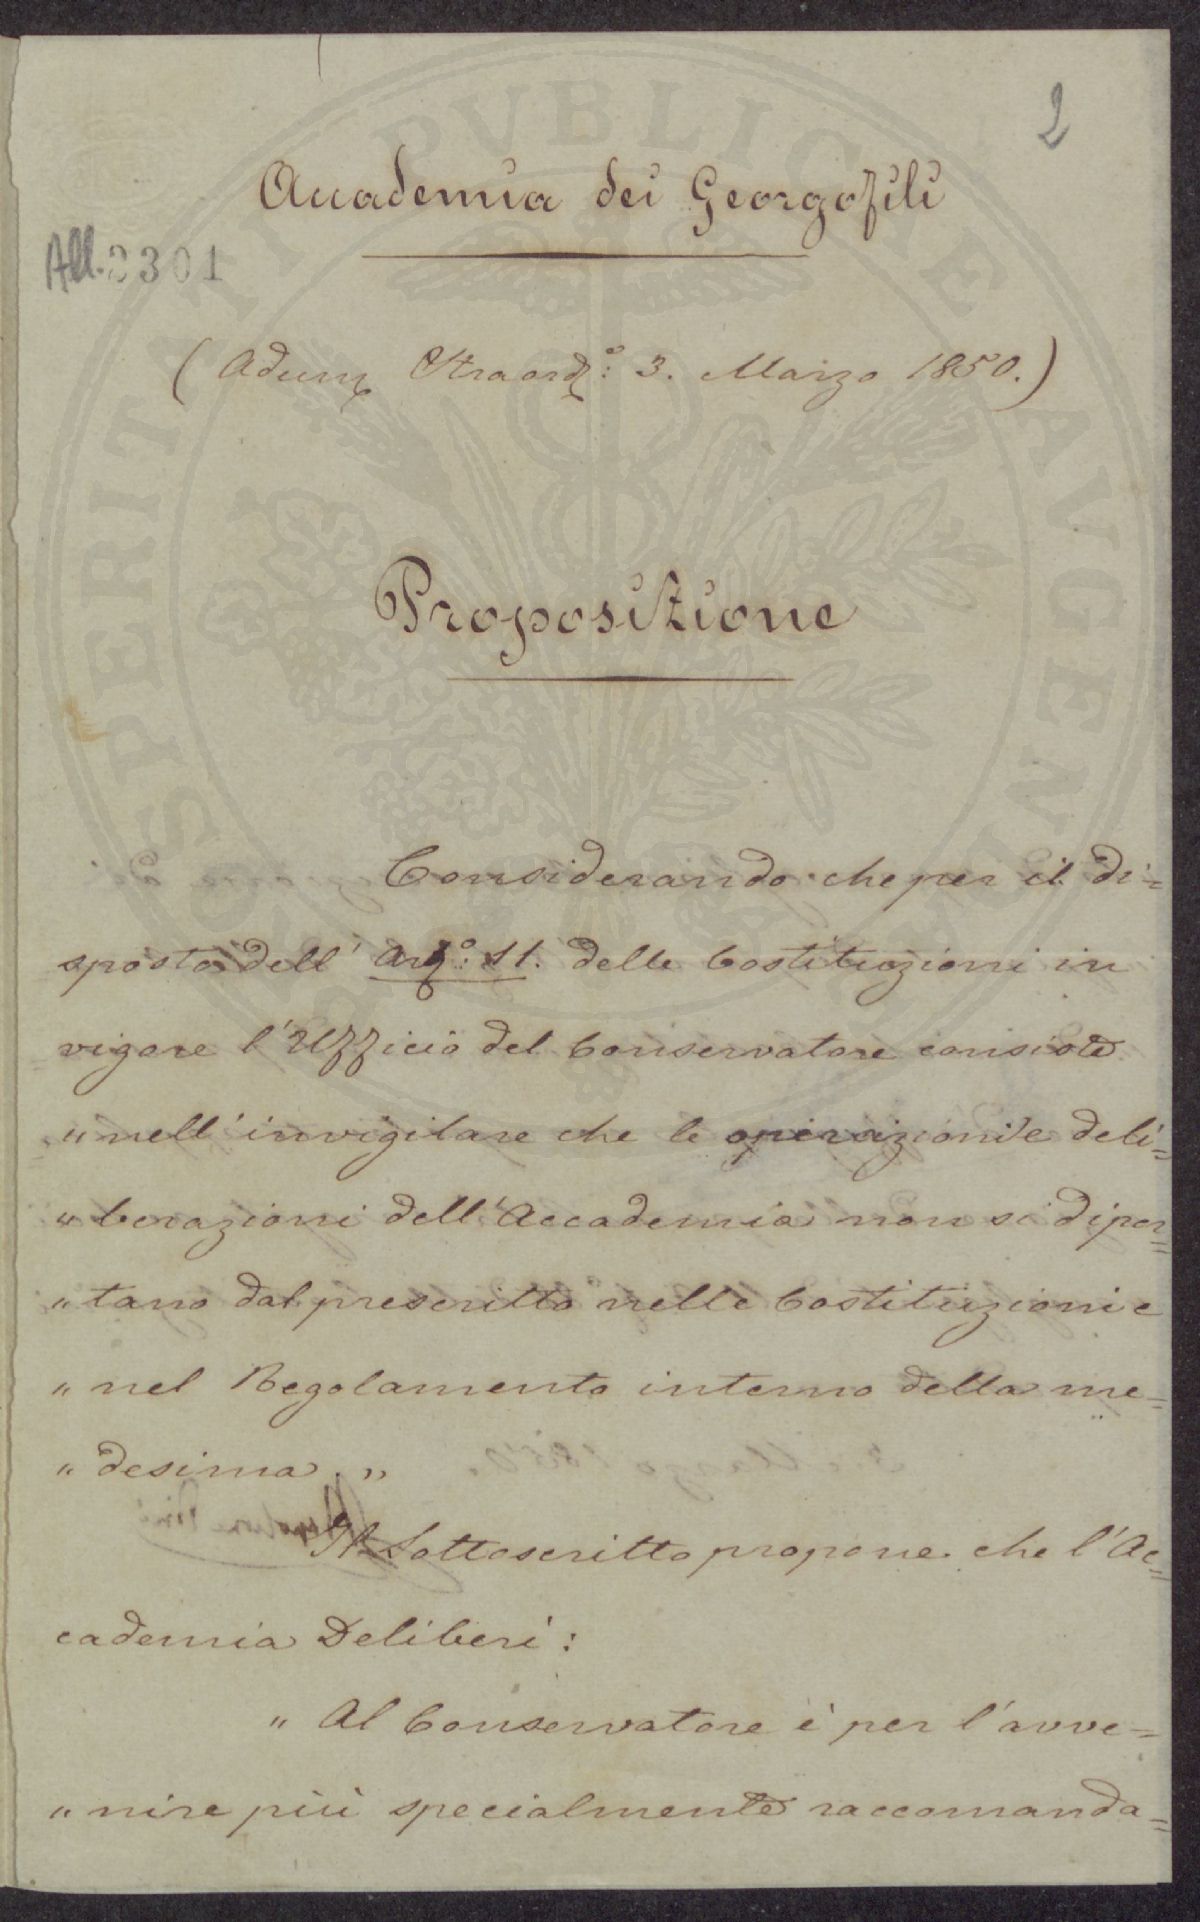 2
Accademia dei Georgofili
All. 2301
(Adunz Straordª: 3. Marzo 1850.)
Proposizione
Considerando che per il di=
sposto dell' Artº: 11. delle Costituzioni in
vigore l'Ufficio del Conservatore consiste
"nell'invigilare che le operazioni e deli=
"berazioni dell'Accademia non si dipar=
"tano dal prescritto nelle Costituzioni e
"nel Regolamento interno della me=
"desima."
Il Sottoscritto propone che l'Ac=
cademia Deliberi:
"Al Conservatore è per l'avve=
"nire più specialmente raccomanda=
PROSPERITATI PUBLICAE AUGENDAE